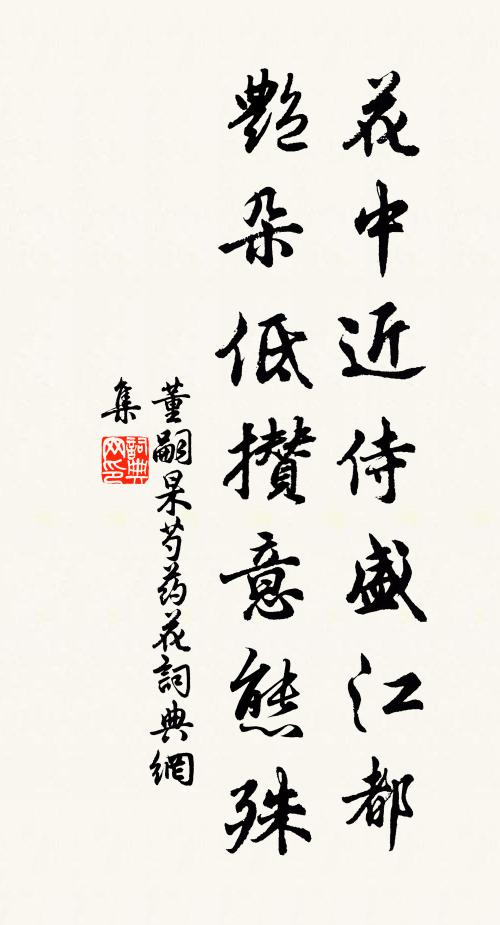 花中近侍盛江都
艷朵低攢意態殊
董嗣杲芍药花詞典網
集
詞典
网印